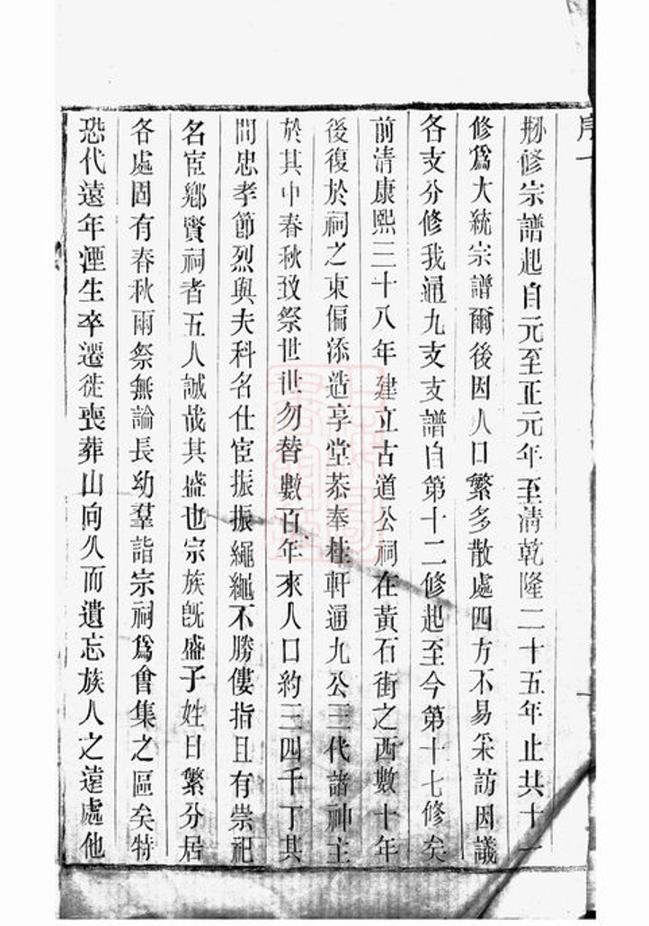 序
刱修宗譜起自元至正元年至清乾隆二十五年止共十一
修為大統宗譜爾後因人口繁多散處四方不易采訪因議
各支分修我通九支支譜自第十二修起至今第十七修矣
前清康熙三十八年建立古道公祠在黃石街之西數十年
後復於祠之東偏添造享堂恭奉桂軒通九公三代諸神主
於其中春秋致祭世世勿替數百年來人口約三四千丁其
間忠孝節烈與夫科名仕宦振振繩繩不勝僂指且有崇祀
名宦鄉賢祠者五人誠哉其盛也宗族既盛子姓日繁分居
各處固有春秋兩祭無論長幼羣詣宗祠為會集之區矣特
恐代遠年湮生卒遷徙喪葬山向久而遺忘族人之遠處他